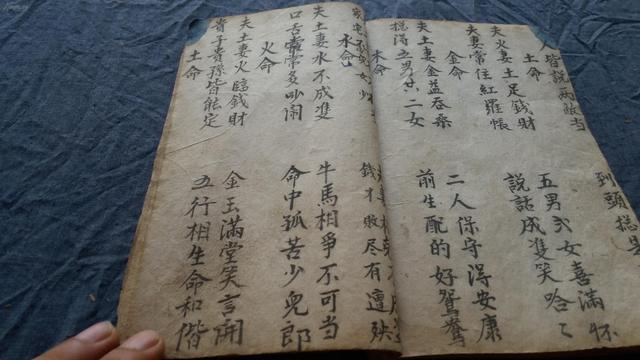 人皆說兩敵当 到頭総是
土命
夫火妻土足錢財 五男弍女喜滿怀
夫妻常住紅羅帳 說話成雙笑哈〻
金命
夫土妻金益吞桑 二人保守得安康
総得五男共二女 前生配的好鴛鴦
木命
錢才敗尽有遭殃
水命
夫土妻水不成雙 牛馬相爭不可当
口舌常常多吵闹 命中孤苦少兒郎
火命
夫土妻火臨錢財 金玉滿堂笑言開
貴子貴孫皆能定 五行相生命和偕
土命